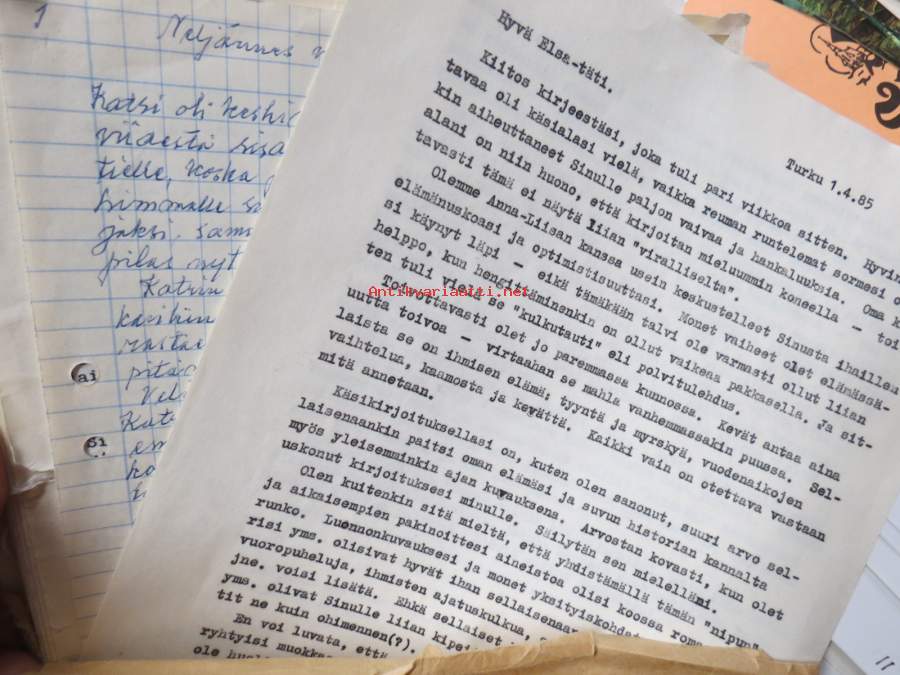 1
Neljännes
Katsi oli keski
viidestä sisa
tielle, koska
himmälle
jaksi. sam
pilas nyt
Katri
karihin
pitä
ai
si
Turku 1.4.85
Hyvä Elsa-täti.
Kiitos kirjeestäsi, joka tuli pari viikkoa sitten. Hyvin
tavaa oli käsialasi vielä, vaikka reuman runtelemat sormesi o
kin aiheuttaneet Sinulle paljon vaivaa ja hankaluuksia. Oma k
alani on niin huono, että kirjoitan mieluummin koneella - toi
tavasti tämä ei näytä liian "viralliselta".
Olemme Anna-Liisan kanssa usein keskustelleet Sinusta ihaillen
elämänuskoasi ja optimistisuuttasi. Monet vaiheet olet elämässä-
si käynyt läpi - eikä tämäkään talvi ole varmasti ollut liian
helppo, kun hengittäminenkin on ollut vaikeaa pakkasella. Ja sit-
ten tuli vielä se "kulkutauti" eli polvitulehdus.
Toivottavasti olet jo paremmassa kunnossa. Kevät antaa aina
uutta toivoa - virtaahan se mahla vanhemmassakin puussa. Sel-
laista se on ihmisen elämä; tyyntä ja myrskyä, vuodenaikojen
vaihtelua, kaamosta ja kevättä. Kaikki vain on otettava vastaan
mitä annetaan.
Käsikirjoituksellasi on, kuten olen sanonut, suuri arvo sel-
laisenaankin paitsi oman elämäsi ja suvun historian kannalta
myös yleisemminkin ajan kuvauksena. Arvostan kovasti, kun olet
uskonut kirjoituksesi minulle. Säilytän sen mielelläni.
Olen kuitenkin sitä mieltä, että yhdistämällä tämän "nipun"
ja aikaisempien pakinoittesi aineistoa olisi koossa roma
runko. Luonnonkuvauksesi ja monet yksityiskohdat
risi yms. olisivat hyvät ihan sellaisenaan
vuoropuheluja, ihmisten ajatuskulkua,
jne. voisi lisätä. Ehkä sellaiset
yms. olivat Sinulle liian kipei
tit ne kuin ohimennen(?).
En voi luvata, että
ryhtyisi muokka
ole huol
Antikvariaatti.net